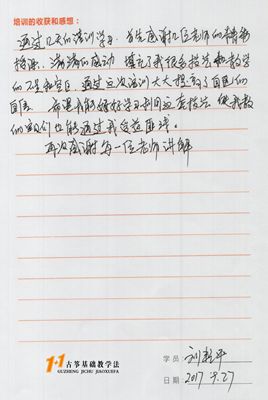 培训的收获和感想：
通过几天的培训学习，首先感谢几位老师的精彩
授课，满满的感动，填充了我很多技法和教学
的不足和空白，通过这次培训大大提高了自己的
自信，希望我能够好好学习利用这套指法，使我教
的学员们也能通过我受益匪浅。
再次感谢每一位老师讲解
1+1 古筝基础教学法
GUZHENG JICHU JIAOXUEFA
学员 刘 平
日期 2017.9.27